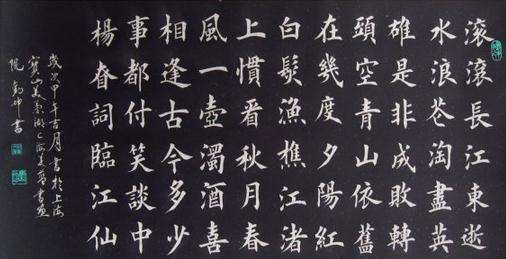 滾滾長江東逝
水浪花淘盡英
雄是非成敗轉
頭空青山依舊
在幾度夕陽紅
白髮漁樵江渚
上慣看秋月春
風一壺濁酒喜
相逢古今多少
事都付笑談中
楊眘詞臨江仙
歲次甲午吉月書於上海
寶山美蘭湖
阮書